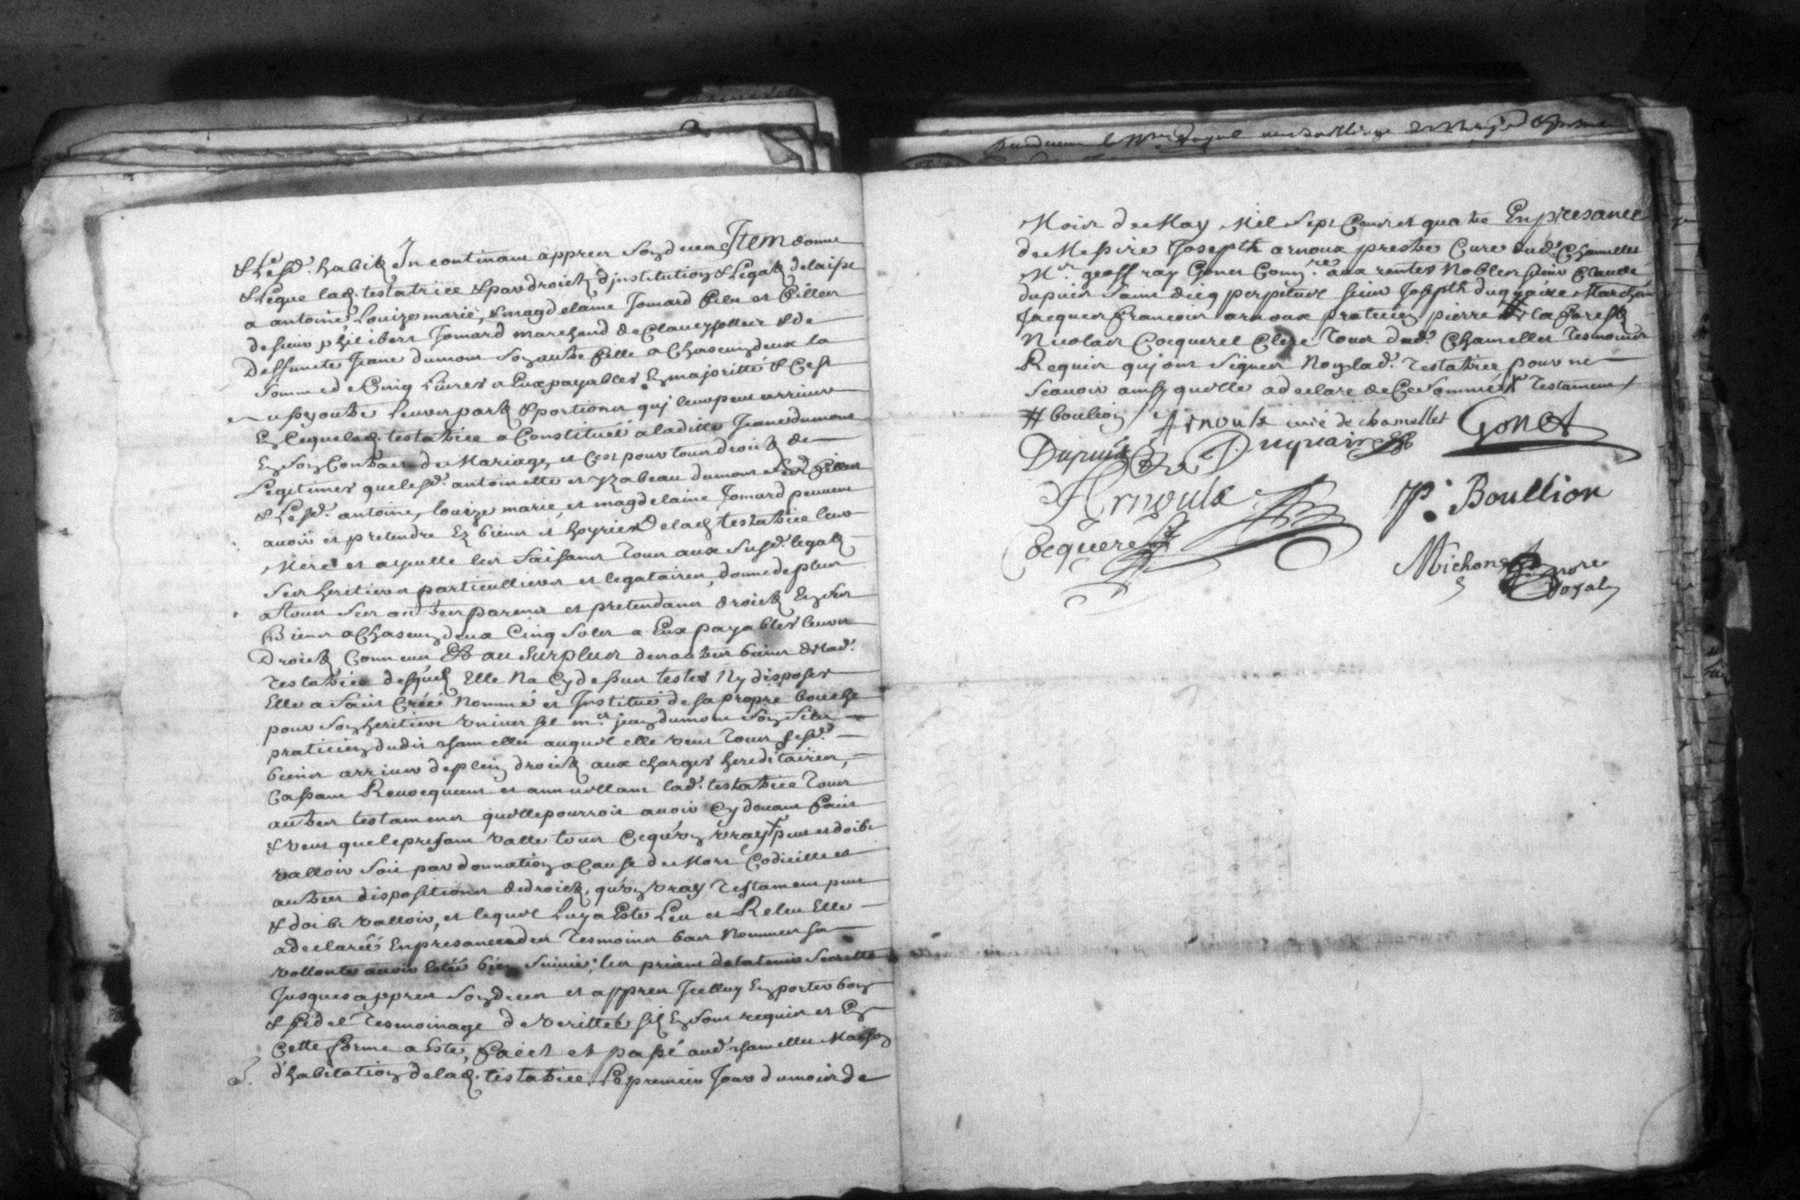 & Lesd. habitz Incontinant appres son deces Item donne
& Legue lad. testatrice & par droict d'institution & Legatz delaisse
a antoine, Louize marie, & magdelaine Jomard fils et filles
de sieur philibert Jomard marchand de Claveysolles & de
deffuncte Jeane dumont son autre fille a Chascun deux la
somme de Cinq Livres a Eux payables En majoritté & C'est
outre Leurs partz & portions qui leur peut arriver
En Ce que lad. testatrice a Constitué a laditte Jeane dumont
En son Contract de Mariage, et C'est pour tous droictz de
Legitimes que lesd. antoinette et yzabeau dumont ses filles
& Lesd. antoine, louize marie, et magdelaine Jomard peuvent
avoir et pretendre Ez biens et hoyries de lad. testatrice leur
Mere et ayeulle les faisant Tous aux susd. legatz
ses heritiers particulliers et legataires, donne de plus
a Tous ses autres parens et pretendans droictz En ses
Biens a Chascun deux Cinq solz a Eux payables leurs
Droictz Connus Et au surplus des autres biens de lad.
testatrice desquelz Elle Na Cy dessus testé Ny disposer
Elle a faict Créé Nommé et Institué de sa propre bouche
pour son heritier universel mr. jean dumont son filz
praticien dudit chamellet auquel elle veut Tous sesd.
biens arriver de plein droict aux charges hereditaires,
Cassant Revocquant et annullant lad. testatrice Tous
autres testamens qu'elle pourroit avoir Cy devant faict
& veut que le present valle tout Ce qu'un vray peut et doibt
valloir soit par donnation a Cause de Mort Codicille et
autres dispositions de droict, qu'un vray Testament peut
& doibt valloir, et lequel Luy a Esté Leu et Releu Elle
a declaré En presance des Tesmoins bas Nommes sa
vollonté avoir Estée bien suivie; les priant de la tenir secrette
Jusques appres son deces et appres Icelluy En porter bon
& fidel Tesmoinage de verittés silz En sont requis et En
Cette forme a Esté, faict et passé aud. chamellet Maison
d'habitation de lad. testatrice, Le premier Jour du mois de
Mois de May Mil Sept Cents et quatre En presance
de Messire Joseph arnoux prestre Curé dud. Chamellet
Mr. geoffray Gonet Comre. aux rentes Nobles sieur Claude
dupuis perpetuel sieur Joseph duquaire Marchan
Jacques francois arnoux praticien pierre # la forest
Nicolas Cocquerel Clerc Tous dud. Chamellet Tesmoins
Requis qui ont signer Non lad. Testatrice pour ne
scavoir ainsy quelle a declaré de Ce sommé Testament
# boulion Arnoulx curé de chamellet Gonet
Dupuis Duquaire
Arnoulx P. Boullion
Cocquerel
Michon
nore Royal